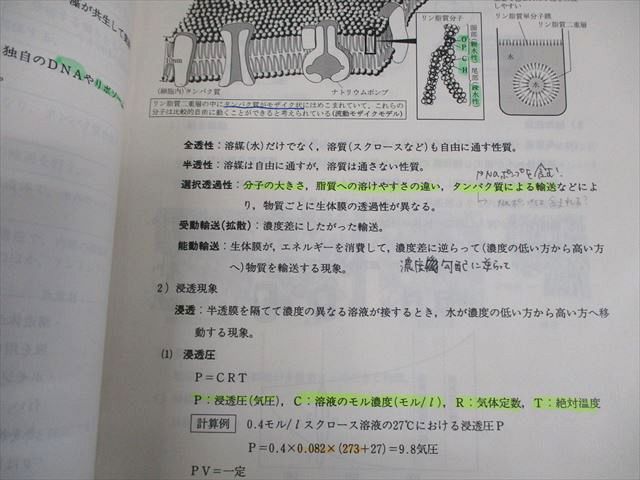 藻が共生して
独自のDNAやリボソ
リン脂質分子
O
P
C
H
頭部
親水性
尾部
疎水性
リン脂質単分子膜
リン脂質二重層
水
水
10nm
(細胞内)タンパク質
ナトリウムポンプ
リン脂質二重層の中にタンパク質がモザイク状にはめこまれていて，これらの
分子は比較的自由に動くことができると考えられている(流動モザイクモデル)
全透性：溶媒(水)だけでなく，溶質(スクロースなど)も自由に通す性質。
半透性：溶媒は自由に通すが，溶質は通さない性質。
選択透過性：分子の大きさ，脂質への溶けやすさの違い，タンパク質による輸送などによ
り，物質ごとに生体膜の透過性が異なる。
受動輸送(拡散)：濃度差にしたがった輸送。
能動輸送：生体膜が，エネルギーを消費して，濃度差に逆らって(濃度の低い方から高い方
へ)物質を輸送する現象。
濃度勾配に逆らって
2）浸透現象
浸透：半透膜を隔てて濃度の異なる溶液が接するとき，水が濃度の低い方から高い方へ移
動する現象。
(1) 浸透圧
P＝CRT
P：浸透圧(気圧)，C：溶液のモル濃度(モル/l)，R：気体定数，T：絶対温度
計算例 0.4モル/lスクロース溶液の27℃における浸透圧P
P＝0.4×0.082×(273＋27)＝9.8気圧
PV＝一定